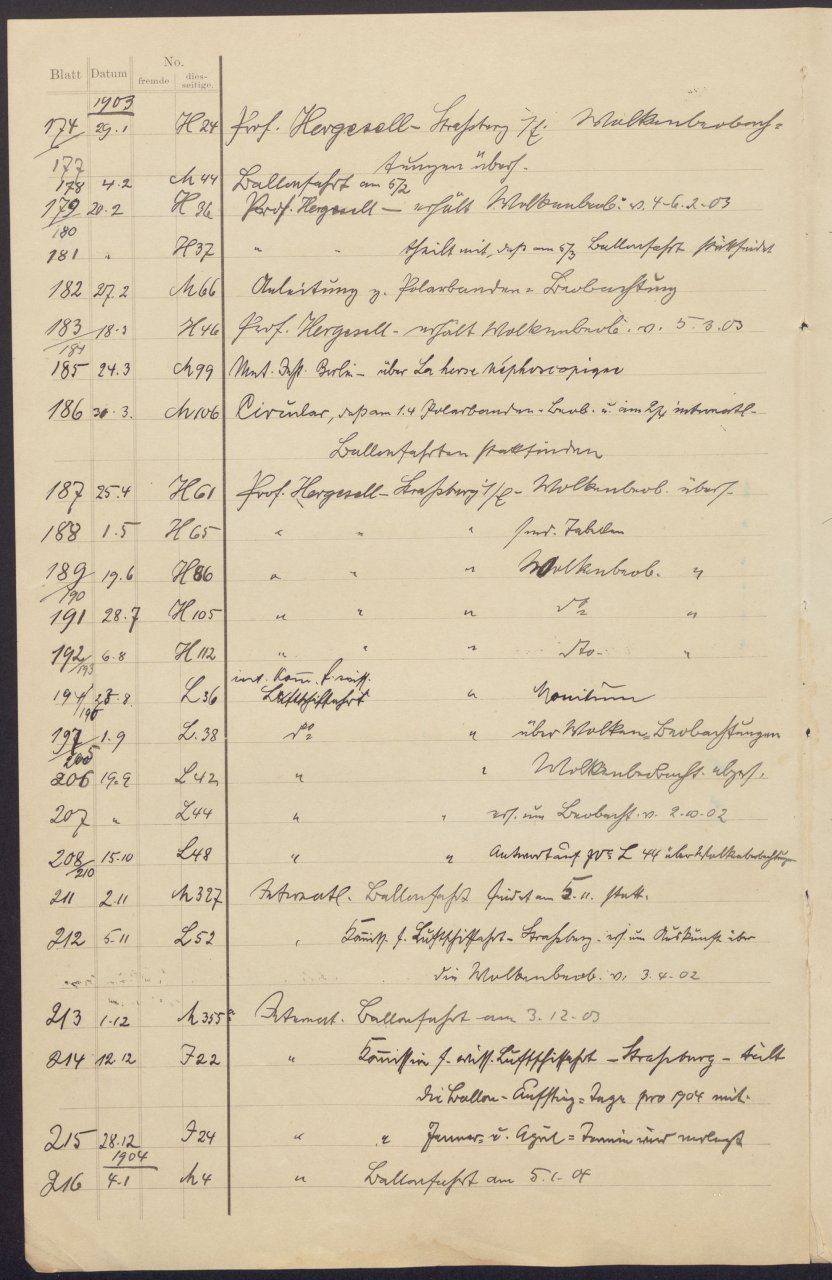 Blatt Datum No.
fremde dies-
seitige.
1903
174 29.1 H 24 Prof. Hergesell - Straßburg i/E. Wolkenbeobach=
177 tungen übers.
178 4.2 M 44 Ballonfahrt am 5/2
179 20.2 H 36 Prof. Hergesell - erhält Wolkenbeob. v. 4-6.2.03
180
181 " H 37 " " theilt mit, daß am 5/3 Ballonfahrt stattfindet
182 27.2 M 66 Anleitung z. Polarbanden = Beobachtung
183 18.3 H 46 Prof. Hergesell - erhält Wolkenbeob. v. 5.3.03
184
185 24.3 M 99 Met. Inst. Berlin - über La herse néphoscopique
186 30.3. M 106 Circular, daß am 1.4 Polarbanden-Beob. u. am 2/4 internatl.
Ballonfahrten stattfinden
187 25.4 H 61 Prof. Hergesell - Straßburg i/E - Wolkenbeob. übers.
188 1.5 H 65 " " " send. Tabellen
189 19.6 H 86 " " " Wolkenbeob. "
190
191 28.7 H 105 " " " do "
192 6.8 H 112 " " " dto. "
193
int. Kom. f. wiss.
194 8. L 36 Luftschiffahrt " Monitum
196
197 1.9 L. 38 do " über Wolken=Beobachtungen
205
206 19.9 L 42 " " Wolkenbeobacht.
207 " L 44 " " ers. um Beobacht. v.
208 15.10 L 48 " " Antwort auf L 44 über Wolkenbeobachtungen
210
211 2.11 M 327 Internatl. Ballonfahrt findet am 5.11. statt.
212 5.11 L 52 " Komiss. f. Luftschiffahrt - Straßburg - ers. um Auskunft über
die Wolkenbeob. v. 3.4.02
213 1.12 M 355 Internat. Ballonfahrt am 3.12.03
214 12.12 J 22 " Kommission f. wiss. Luftschiffahrt - Straßburg - teilt
die Ballon-Aufstieg=Tage pro 1904 mit.
215 28.12 J 24 " " Jenner= u. April=Termin wird verlegt
1904
216 4.1 M 4 " Ballonfahrt am 5.1.04